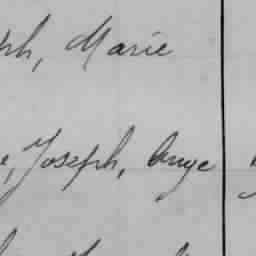 ph, Marie
e, Joseph, Ange